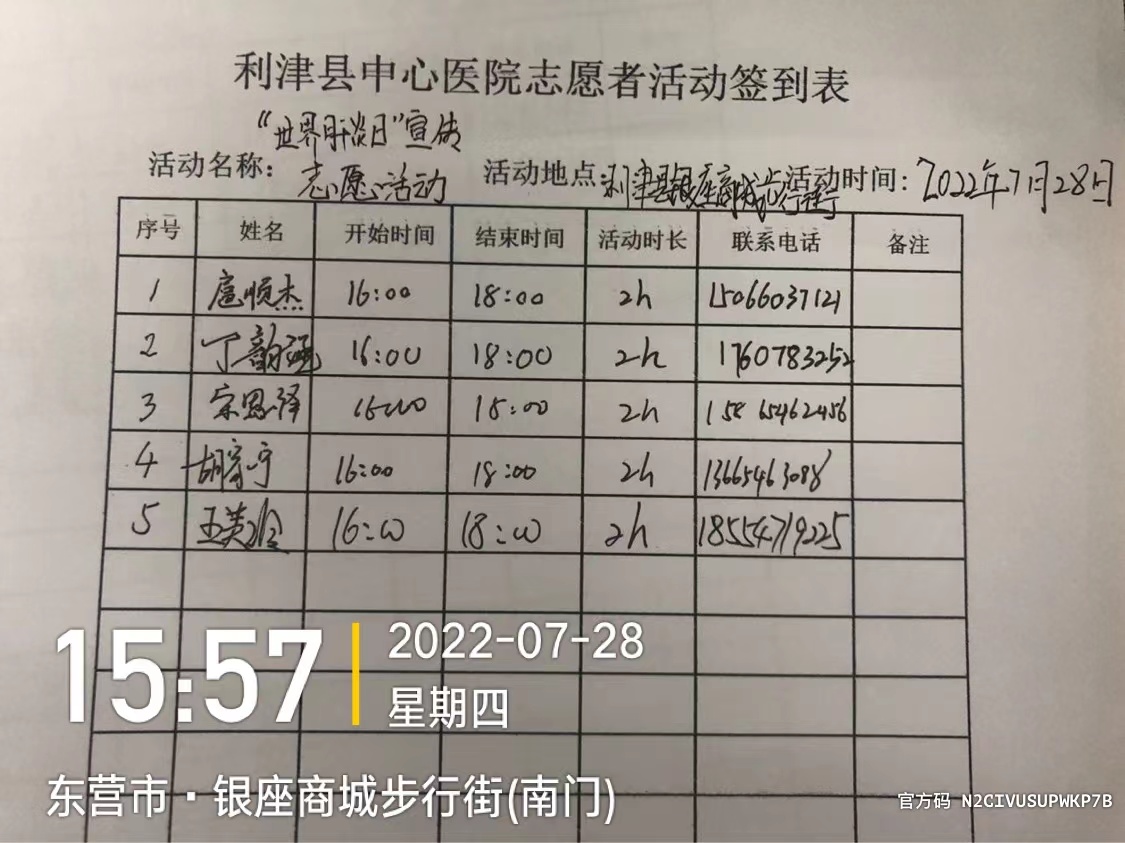 利津县中心医院志愿者活动签到表
“世界肝炎日”宣传
活动名称: 志愿活动 活动地点: 利津县银座商城步行街 活动时间: 2022年7月28日
序号 姓名 开始时间 结束时间 活动时长 联系电话 备注
1 扈顺杰 16:00 18:00 2h 15066037121
2 丁韵涵 16:00 18:00 2h 1760783252
3 宋恩泽 16:00 18:00 2h 65462456
4 胡家宁 16:00 18:00 2h 13665463088
5 王英 16:00 18:00 2h 18554719225
15:57
2022-07-28
星期四
东营市·银座商城步行街(南门)
官方码 N2CIVUSUPWKP7B